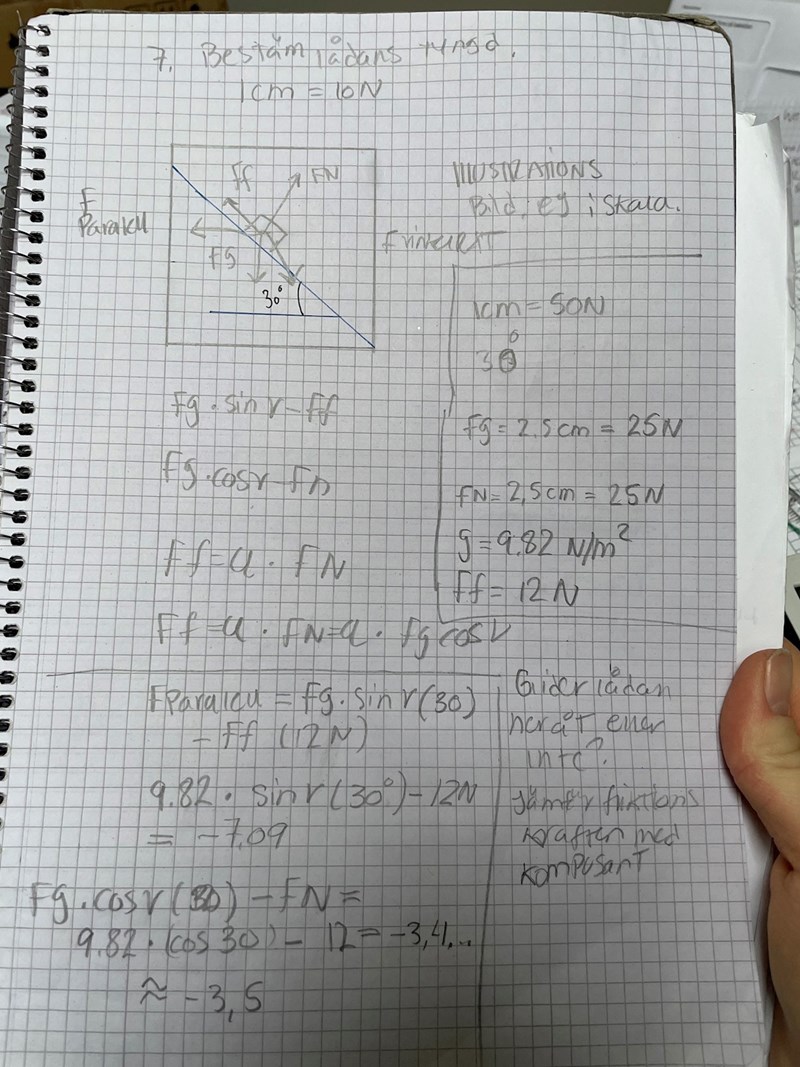 7. Bestäm lådans tyngd.
1cm = 10N
Ff
FN
F
Parallell
Fg
30°
ILLUSTRATIONS
Bild, ej i skala.
F vinkelrät
1cm = 50N
30°
Fg · sin v - Ff
Fg = 2,5cm = 25N
Fg · cos v - Fn
FN = 2,5cm = 25N
g = 9.82 N/m²
Ff = u · FN
Ff = 12N
Ff = u · FN = u · Fg cos v
FParallell = Fg · sin v (30)
- Ff (12N)
9.82 · sin v (30°) - 12N
= -7,09
Glider lådan
neråt eller
inte?
Jämför friktions
kraften med
komposant
Fg · cos v (30) - FN =
9.82 · (cos 30) - 12 = -3,4...
≈ -3,5